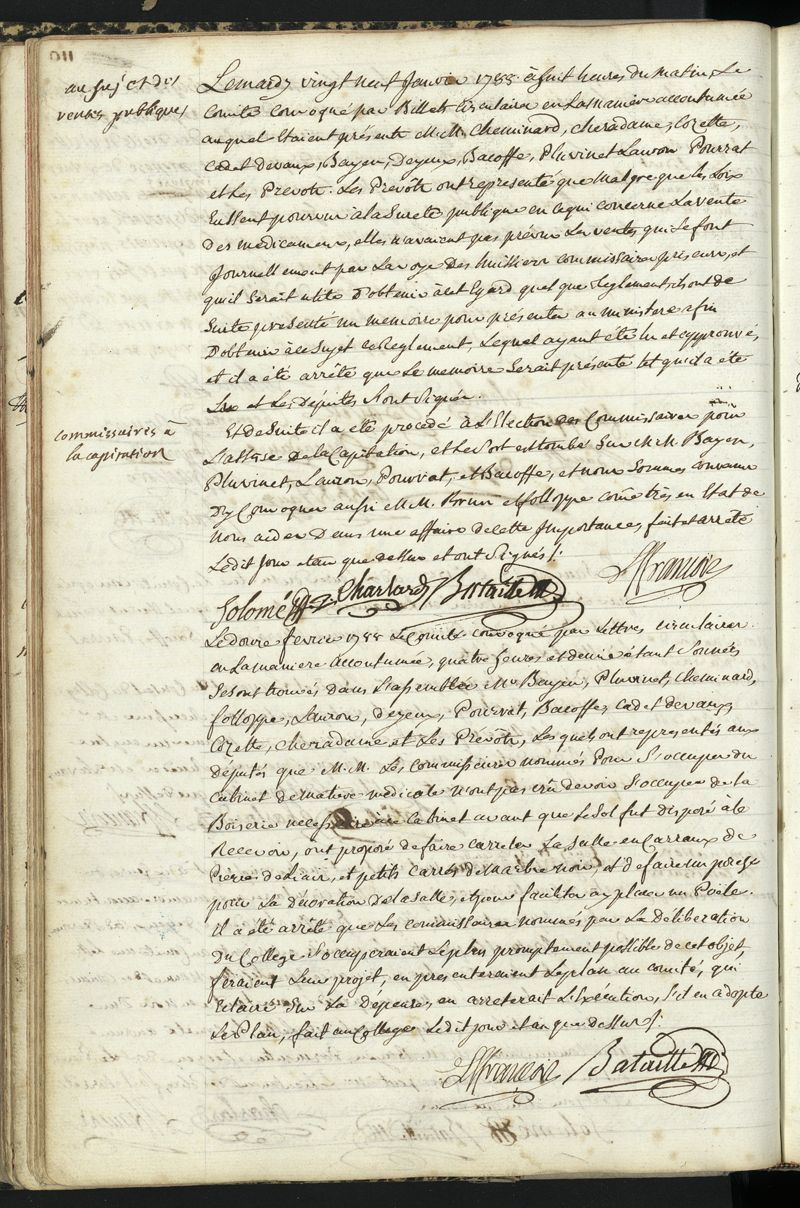 110
au sujet des
ventes publiques
Le mardy vingt neuf Janvier 1788 à huit heures du matin, Le
Comité Convoqué par Billets circulaire en La maniere accoutumée
auquel Etaient présents M.M. Cheminard, cheradame, Cozette,
cadet devaux, Bayen, Deyeux, Bacoffe, Pluvinet Lauron Pourrat
et Les Prevots. Les Prevôts ont representé que malgré que les Loix
Eussent pourvu à la Sureté publique en ce qui concerne La vente
Des medicamens, elles n'avaient pas prévu Les ventes qui Se font
Journellement par La voye Des huissiers commissaires priseurs, et
qu'il Serait utile D'obtenir à cet Egard quelque Reglement, ils ont de
Suite presenté un memoire pour présenter au ministere afin
D'obtenir à ce Sujet ce Reglement, Lequel ayant été lu et approuvé,
et il a été arrêté que Le memoire Serait présenté tel qu'il a été
Lu et Les Députés L'ont Signé.
commissaires à
la capitation
Et de Suite il a été procédé à L'Election des Commissaires pour
L'assise de la Capitation, et Le Sort est tombé Sur M.M. Bayen,
Pluvinet, Lauron, Pourrat, et Bacoffe, et nous Sommes convenu
D'y Convoquer aussi M.M. Brun et folloppe come très en Etat de
nous aider Dans une affaire de cette Importance, fait et arrêté
Ledit Jour et an que dessus et ont Signés /.
Solomé Charlard Bataille
François
Le douze fevrier 1788 Le Comité convoqué par Lettres circulaires
en La maniere accoutumée, quatre heures et demie étant Sonnées
Se Sont trouvés dans L'assemblée Mrs Bayen, Pluvinet, Cheminard,
folloppe, Lauron, Deyeux, Pourrat, Bacoffe, Cadet devaux,
Cozette, cheradame et Les Prevôts, Lesquels ont representés aux
députés que M.M. Les commissaires nommés Pour S'occuper du
Cabinet de matiere medicale n'ont pas cru devoir S'occuper de la
Boiserie necessaire au Cabinet avant que Le Sol fut disposé à le
Recevoir, ont proposé de faire carreler La Salle en Carreaux de
Pierres de Liair, et petits carrés de marbre noir, et de faire un projet
pour La Décoration de la Salle, et pour faciliter a y placer un Poële.
il a été arrêté que Les comissaires nommés par La Déliberation
Du College S'occuperaient Le plus promptement possible de cet objet,
feraient Leur projet, en presenteraient Le plan au comité, qui
Eclairé Sur La Depense, en arreterait L'Exécution, S'il en adopte
Le Plan, fait au College Ledit jour et an que dessus /.
François Bataille